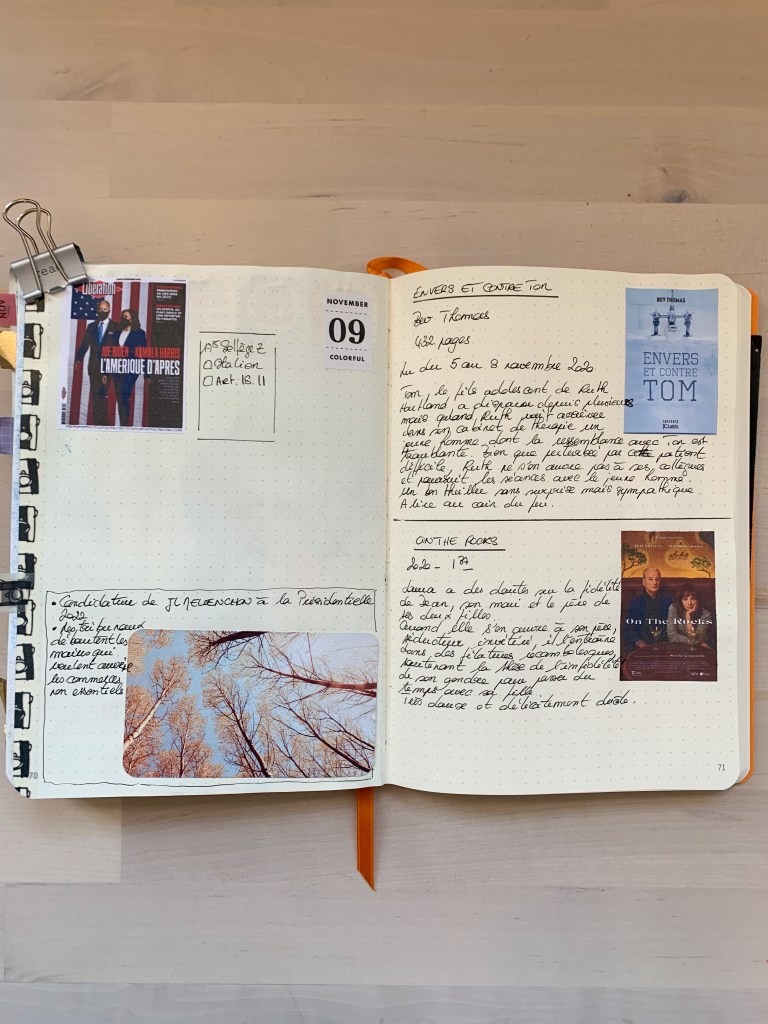 rea
NOV
Libération
JOE BIDEN - KAMALA HARRIS
L'AMÉRIQUE D'APRÈS
Station
Art. 18.11
NOVEMBER
09
COLORFUL
• Candidature de JL MELENCHON à la Présidentielle
2022
• Les tribunaux
déboutent les
maires qui
veulent ouvrir
les commerces
non essentiels
70
ENVERS ET CONTRE TOM
Bev Thomas
432 pages
Lu du 5 au 8 novembre 2020
Tom le fils adolescent de Ruth
Hartland, a disparu depuis plusieurs
mais quand Ruth voit arriver
dans son cabinet de thérapie un
jeune homme dont la ressemblance avec Tom est
troublante. Bien que perturbée par ce patient
difficile, Ruth ne s'en ouvre pas à ses collègues
et poursuit les séances avec le jeune homme.
Un bon thriller sans surprise mais sympathique.
A lire au coin du feu.
BEV THOMAS
ENVERS
ET CONTRE
TOM
ON THE ROCKS
2020 - 1h37
Laura a des doutes sur la fidélité
de Dean, son mari et le père de
ses deux filles.
Quand elle s'en ouvre à son père,
séducteur invétéré, il l'entraine
dans des filatures rocambolesques,
soutenant la thèse de l'infidélité
de son gendre pour passer du
temps avec sa fille.
Très doux et délicatement drôle.
On The Rocks
71